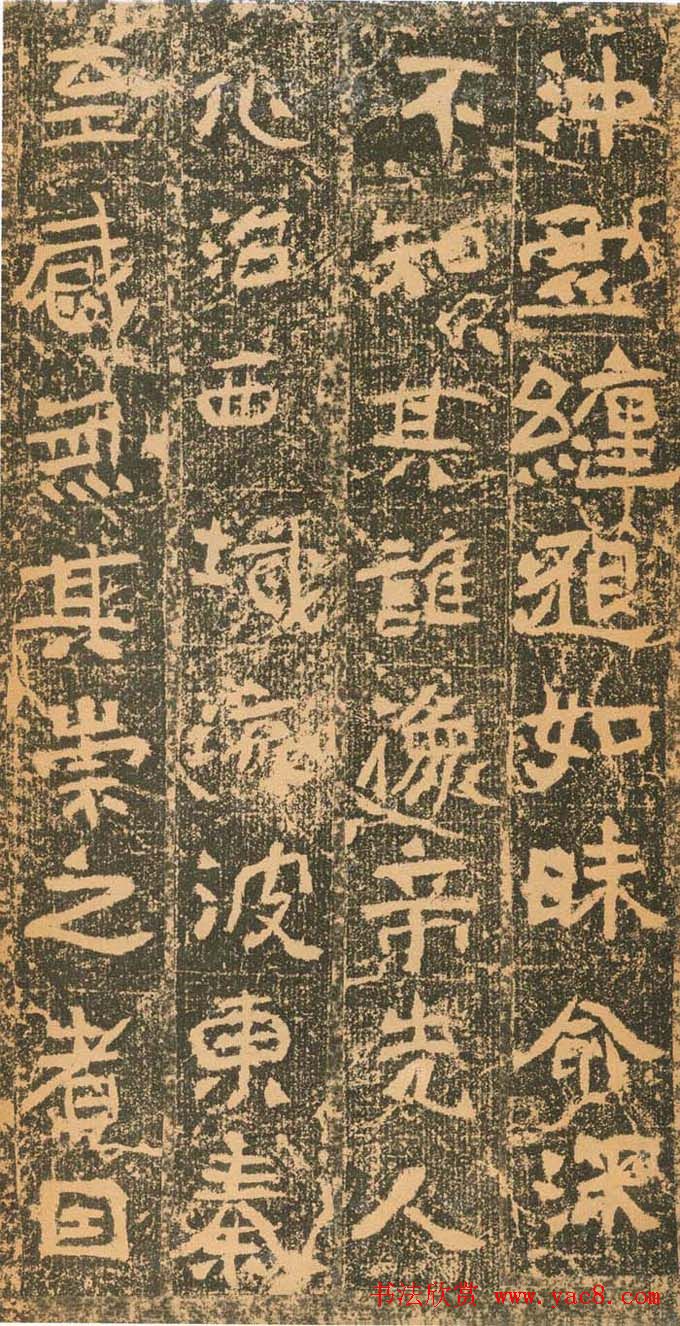 沖纏邈如昧僉深
不知其誰像帝先人
心洽西域流波東秦
至感其崇之者日
书法欣赏 www.yac8.com